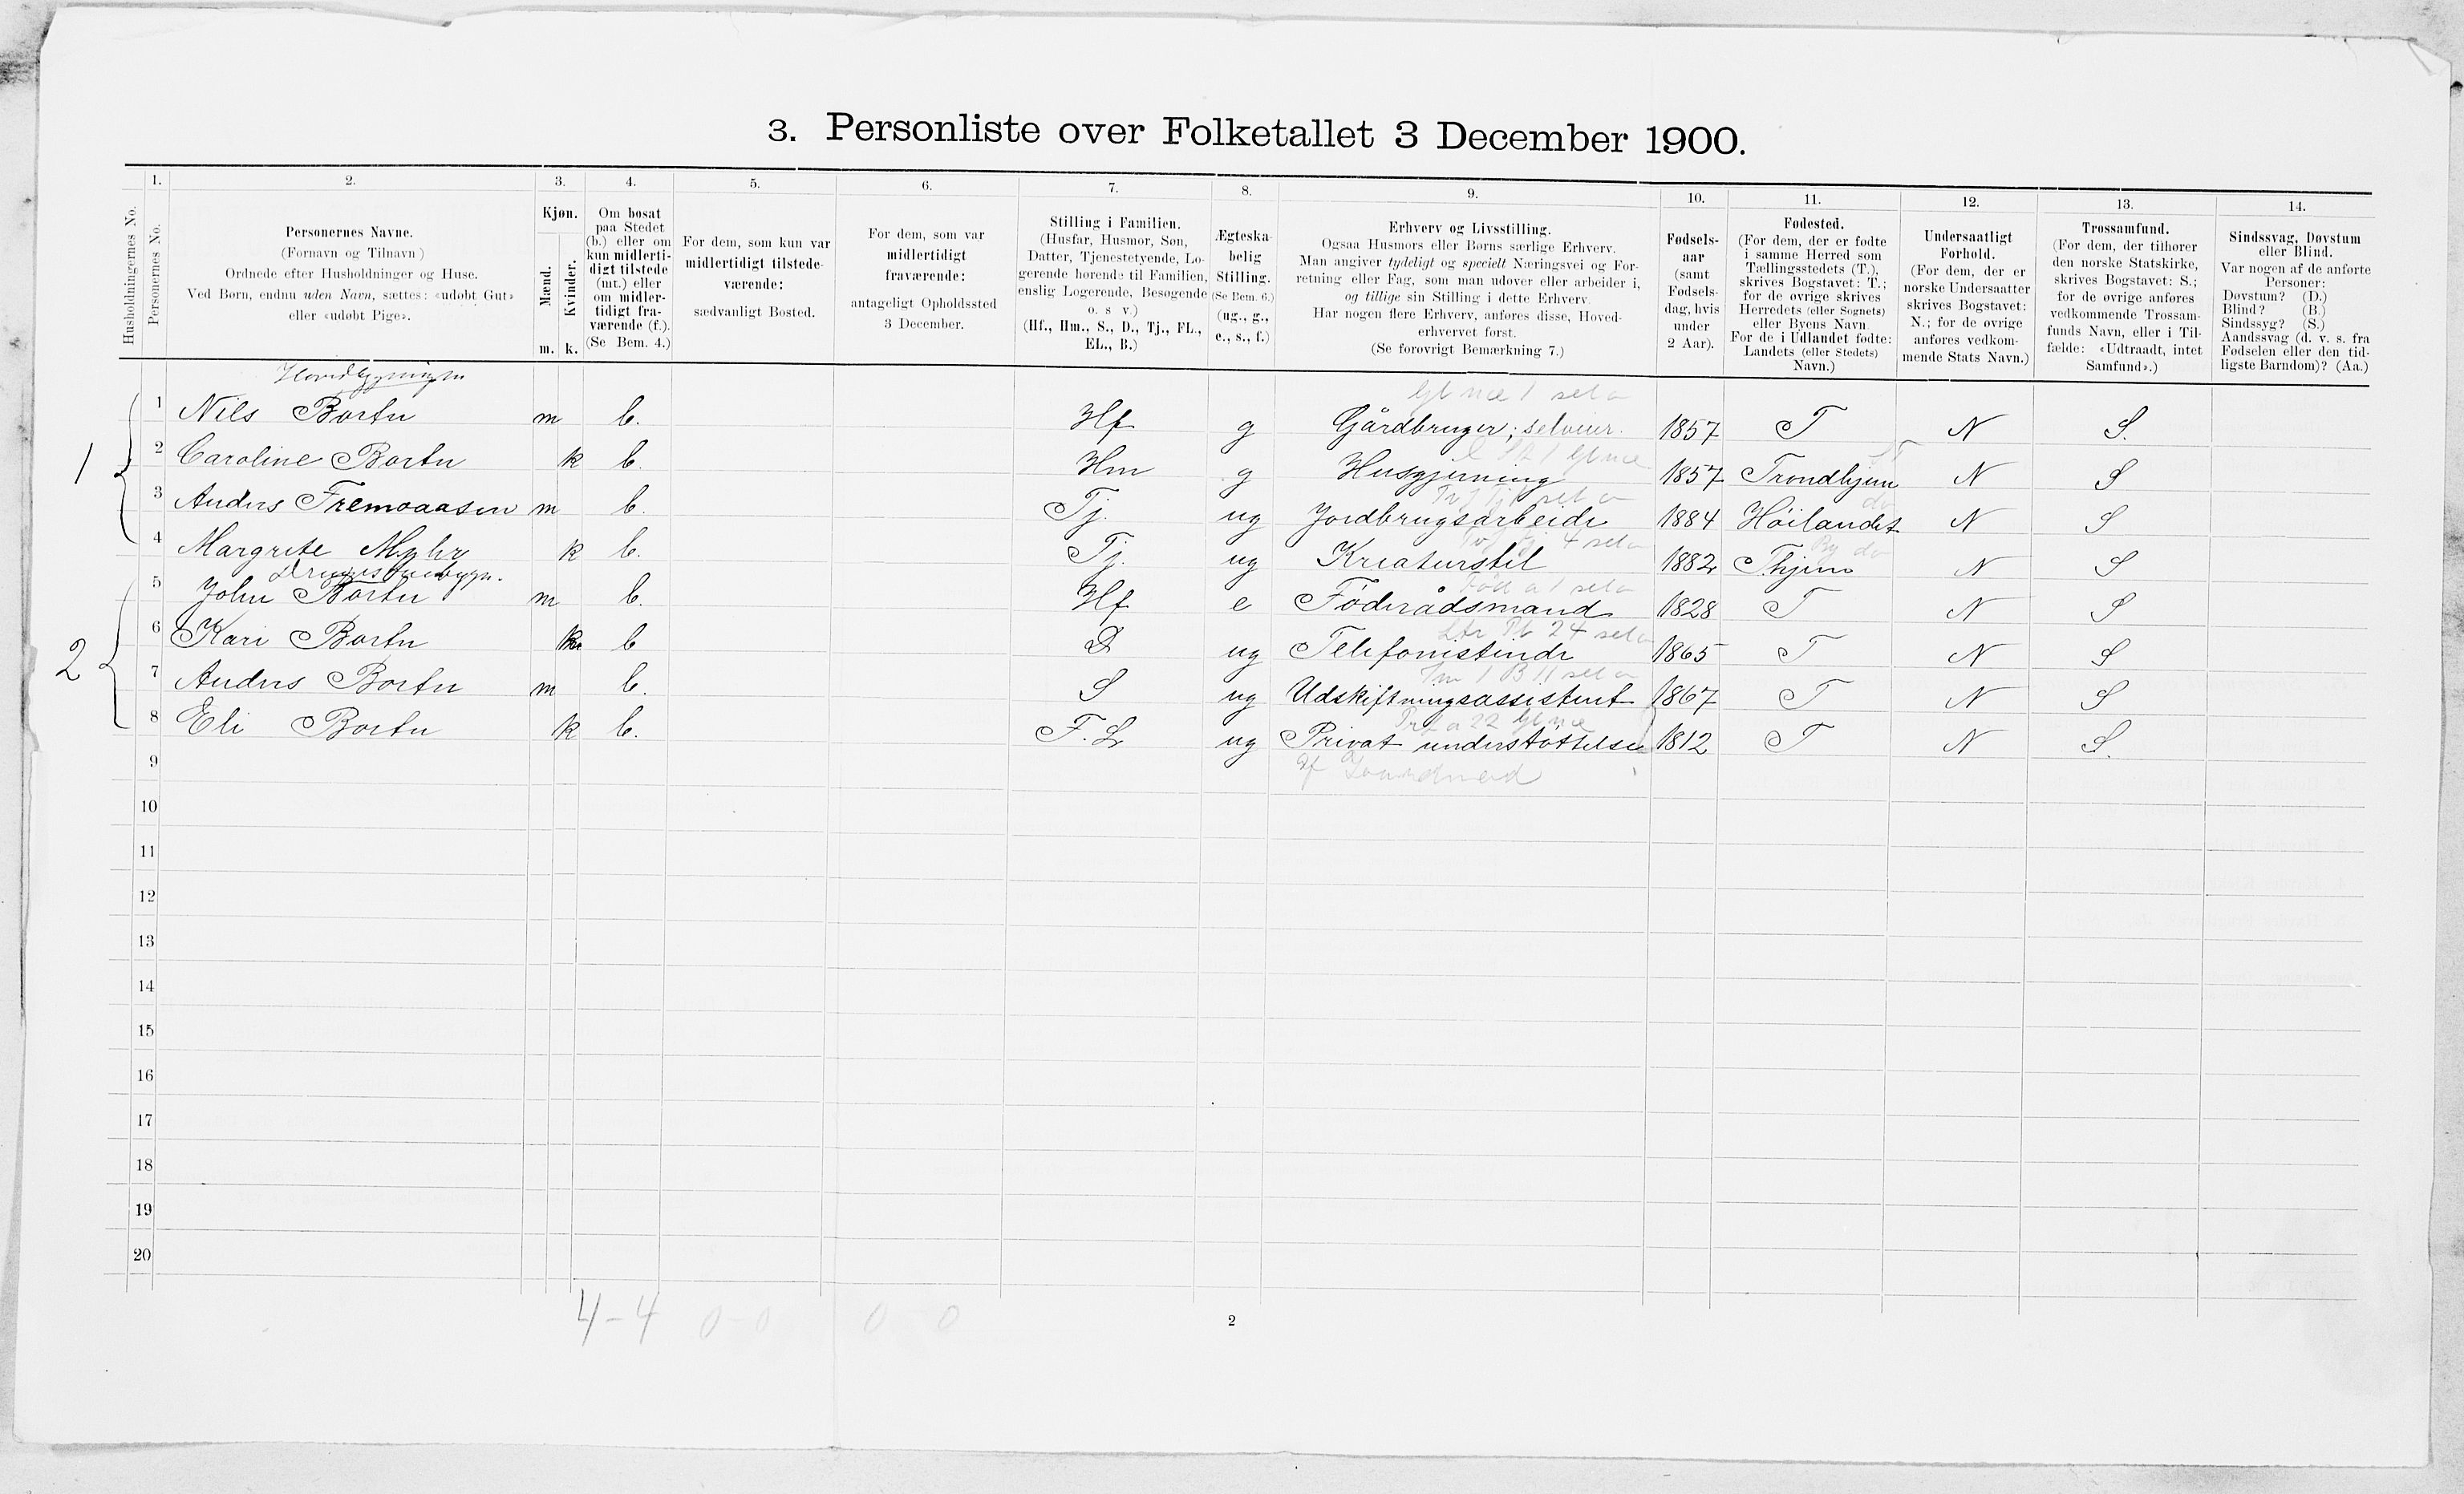 3. Personliste over Folketallet 3 December 1900.
1. 2. 3. 4. 5. 6. 7. 8. 9. 10. 11. 12. 13. 14.
Husholdningernes No.
Personernes No.
Personernes Navne.
(Fornavn og Tilnavn)
Ordnede efter Husholdninger og Huse.
Ved Børn, endnu uden Navn, sættes: «udøbt Gut»
eller «udøbt Pige».
Kjøn.
Mænd.
Kvinder.
m. k.
Om bosat
paa Stedet
(b.) eller om
kun midlerti-
digt tilstede
(mt.) eller
om midler-
tidigt fra-
værende (f.).
(Se Bem. 4.)
For dem, som kun var
midlertidigt tilstede-
værende:
sædvanligt Bosted.
For dem, som var
midlertidigt
fraværende:
antageligt Opholdssted
3 December.
Stilling i Familien.
(Husfar, Husmor, Søn,
Datter, Tjenestetyende, Lo-
gerende hørende til Familien,
enslig Logerende, Besøgende
o. s v.)
(Hf., Hm., S., D., Tj., FL.,
EL., B.)
Ægteska-
belig
Stilling.
(Se Bem. 6.)
(ug., g.,
e., s., f.)
Erhverv og Livsstilling.
Ogsaa Husmors eller Børns særlige Erhverv.
Man angiver tydeligt og specielt Næringsvei og For-
retning eller Fag, som man udøver eller arbeider i,
og tillige sin Stilling i dette Erhverv.
Har nogen flere Erhverv, anføres disse, Hoved-
erhvervet først.
(Se forøvrigt Bemærkning 7.)
Fødsels-
aar
(samt
Fødsels-
dag, hvis
under
2 Aar).
Fødested.
(For dem, der er fødte
i samme Herred som
Tællingsstedets (T.),
skrives Bogstavet: T.;
for de øvrige skrives
Herredets (eller Sognets)
eller Byens Navn
For de i Udlandet fødte:
Landets (eller Stedets)
Navn.)
Undersaatligt
Forhold.
(For dem, der er
norske Undersaatter
skrives Bogstavet:
N.; for de øvrige
anføres vedkom-
mende Stats Navn.)
Trossamfund.
(For dem, der tilhører
den norske Statskirke,
skrives Bogstavet: S.;
for de øvrige anføres
vedkommende Trossam-
funds Navn, eller i Til-
fælde: «Udtraadt, intet
Samfund».)
Sindssvag, Døvstum
eller Blind.
Var nogen af de anførte
Personer:
Døvstum? (D.)
Blind? (B.)
Sindssyg? (S.)
Aandssvag (d. v. s. fra
Fødselen eller den tid-
ligste Barndom)? (Aa.)
Hovedbygningen
1
1 Nils Bortn m b. Hf g Gårdbruger, selveier. 1857 T N S.
2 Caroline Bortn k b. Hm g Husgjerning 1857 Trondhjem N S
3 Anders Fremoaasen m b. Tj. ug Jordbrugsarbeide 1884 Höilandet N S
4 Margrete Myhr k b. Tj. ug Kreaturstel 1882 Thjem N S
2
5 John Bortn m b. Hf e Föderådsmand 1828 T N S
6 Kari Bortn k b D ug Telefonistinde 1865 T N S
7 Anders Bortn m b. S ug Udskiftningsassistent 1867 T N S
8 Eli Bortn k b. F. L ug Privat understöttelse 1812 T N S.
9
10
11
12
13
14
15
16
17
18
19
20
4-4 0-0 0 0
2